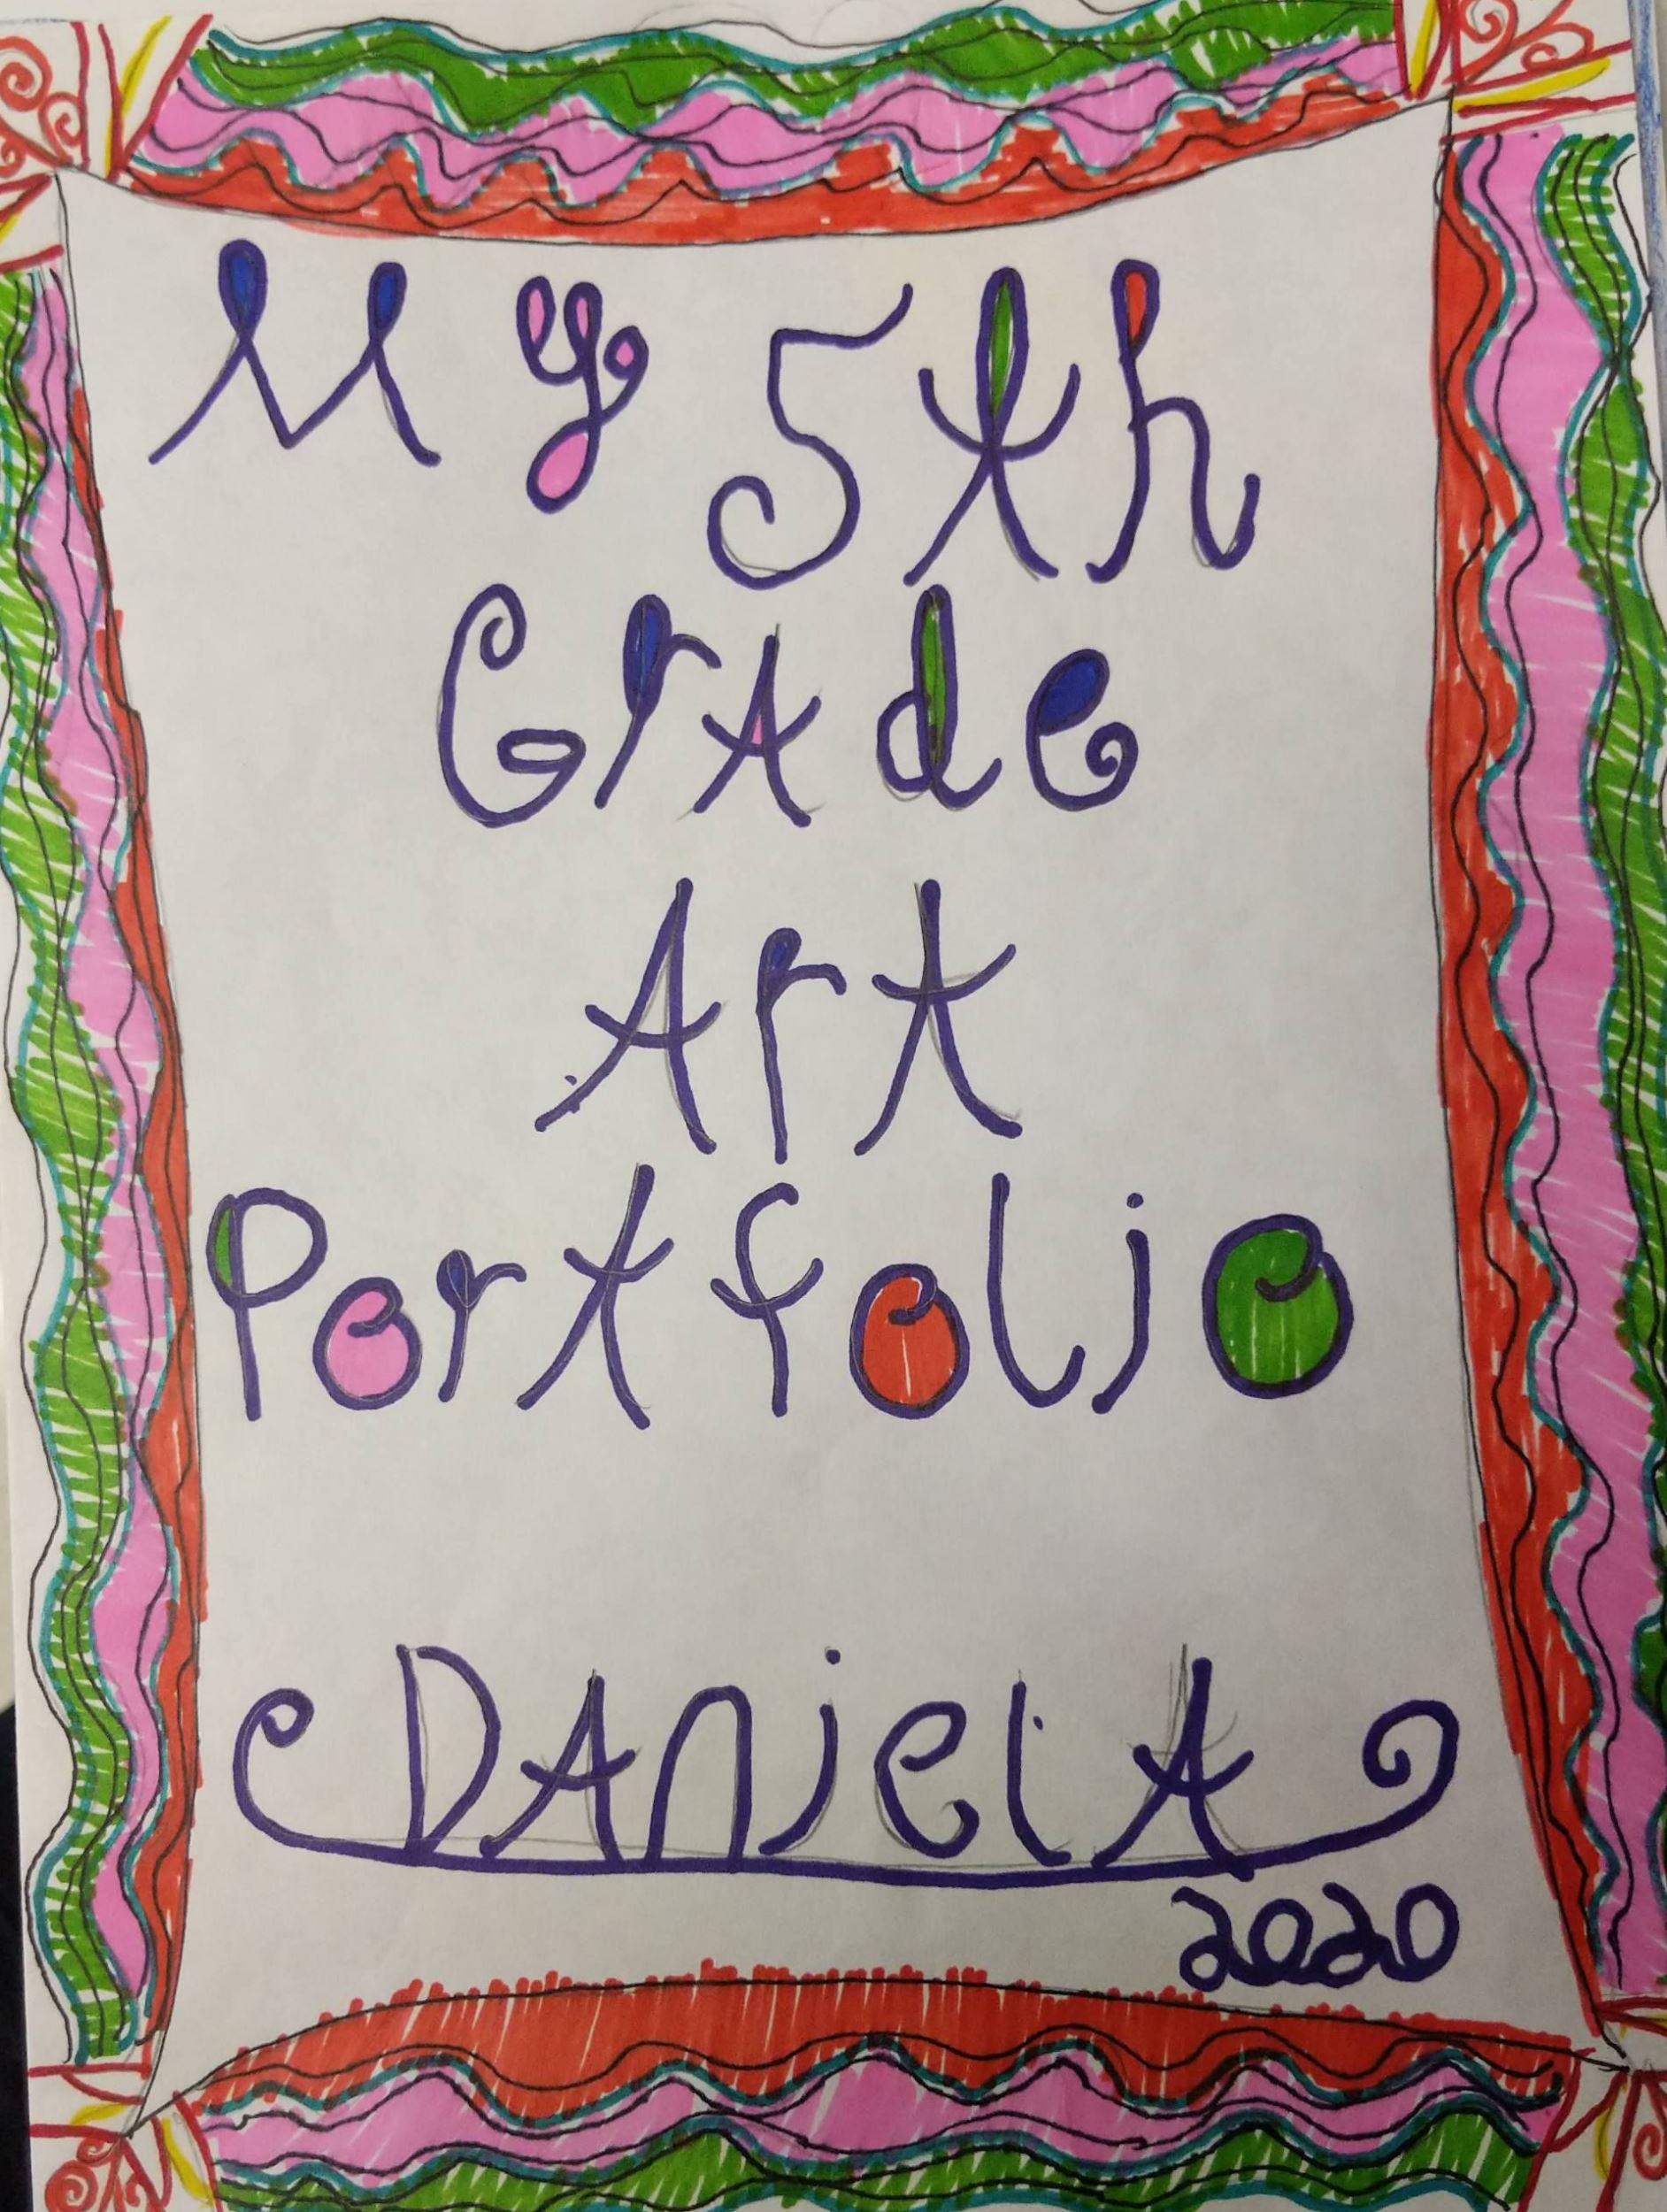 My 5th
Grade
Art
Portfolio
DANielA
2020